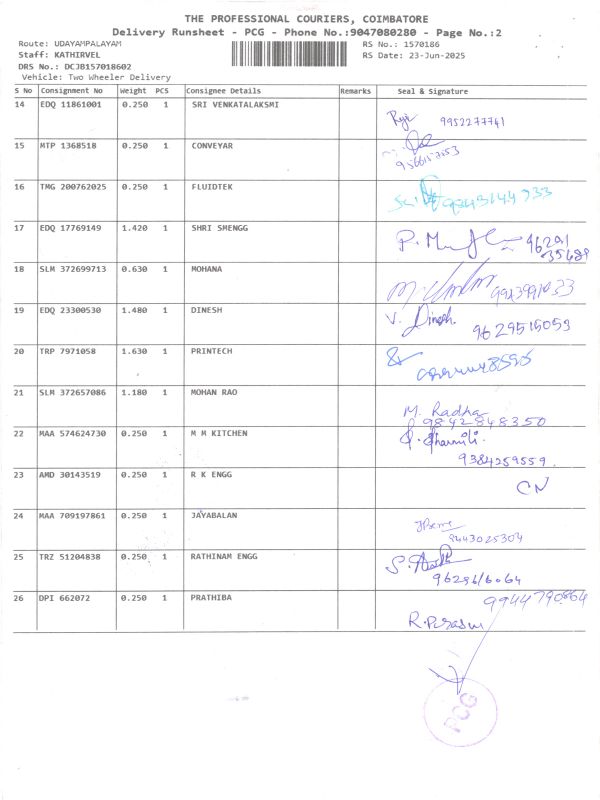 THE PROFESSIONAL COURIERS, COIMBATORE
Delivery Runsheet - PCG - Phone No.:9047080280 - Page No.:2
Route: UDAYAMPALAYAM RS No.: 1570186
Staff: KATHIRVEL RS Date: 23-Jun-2025
DRS No.: DCJB157018602
Vehicle: Two Wheeler Delivery
S No Consignment No Weight PCS Consignee Details Remarks Seal & Signature
14 EDQ 11861001 0.250 1 SRI VENKATALAKSMI
9952277741
15 MTP 1368518 0.250 1 CONVEYAR
16 TMG 200762025 0.250 1 FLUIDTEK
17 EDQ 17769149 1.420 1 SHRI SMENGG
18 SLM 372699713 0.630 1 MOHANA
19 EDQ 23300530 1.480 1 DINESH
V. Dinesh
9629515059
20 TRP 7971058 1.630 1 PRINTECH
21 SLM 372657086 1.180 1 MOHAN RAO
M. Radha
9842848350
22 MAA 574624730 0.250 1 M M KITCHEN
9384259559
23 AMD 30143519 0.250 1 R K ENGG
CN
24 MAA 709197861 0.250 1 JAYABALAN
9443025304
25 TRZ 51204838 0.250 1 RATHINAM ENGG
26 DPI 662072 0.250 1 PRATHIBA
9944790864
PCG